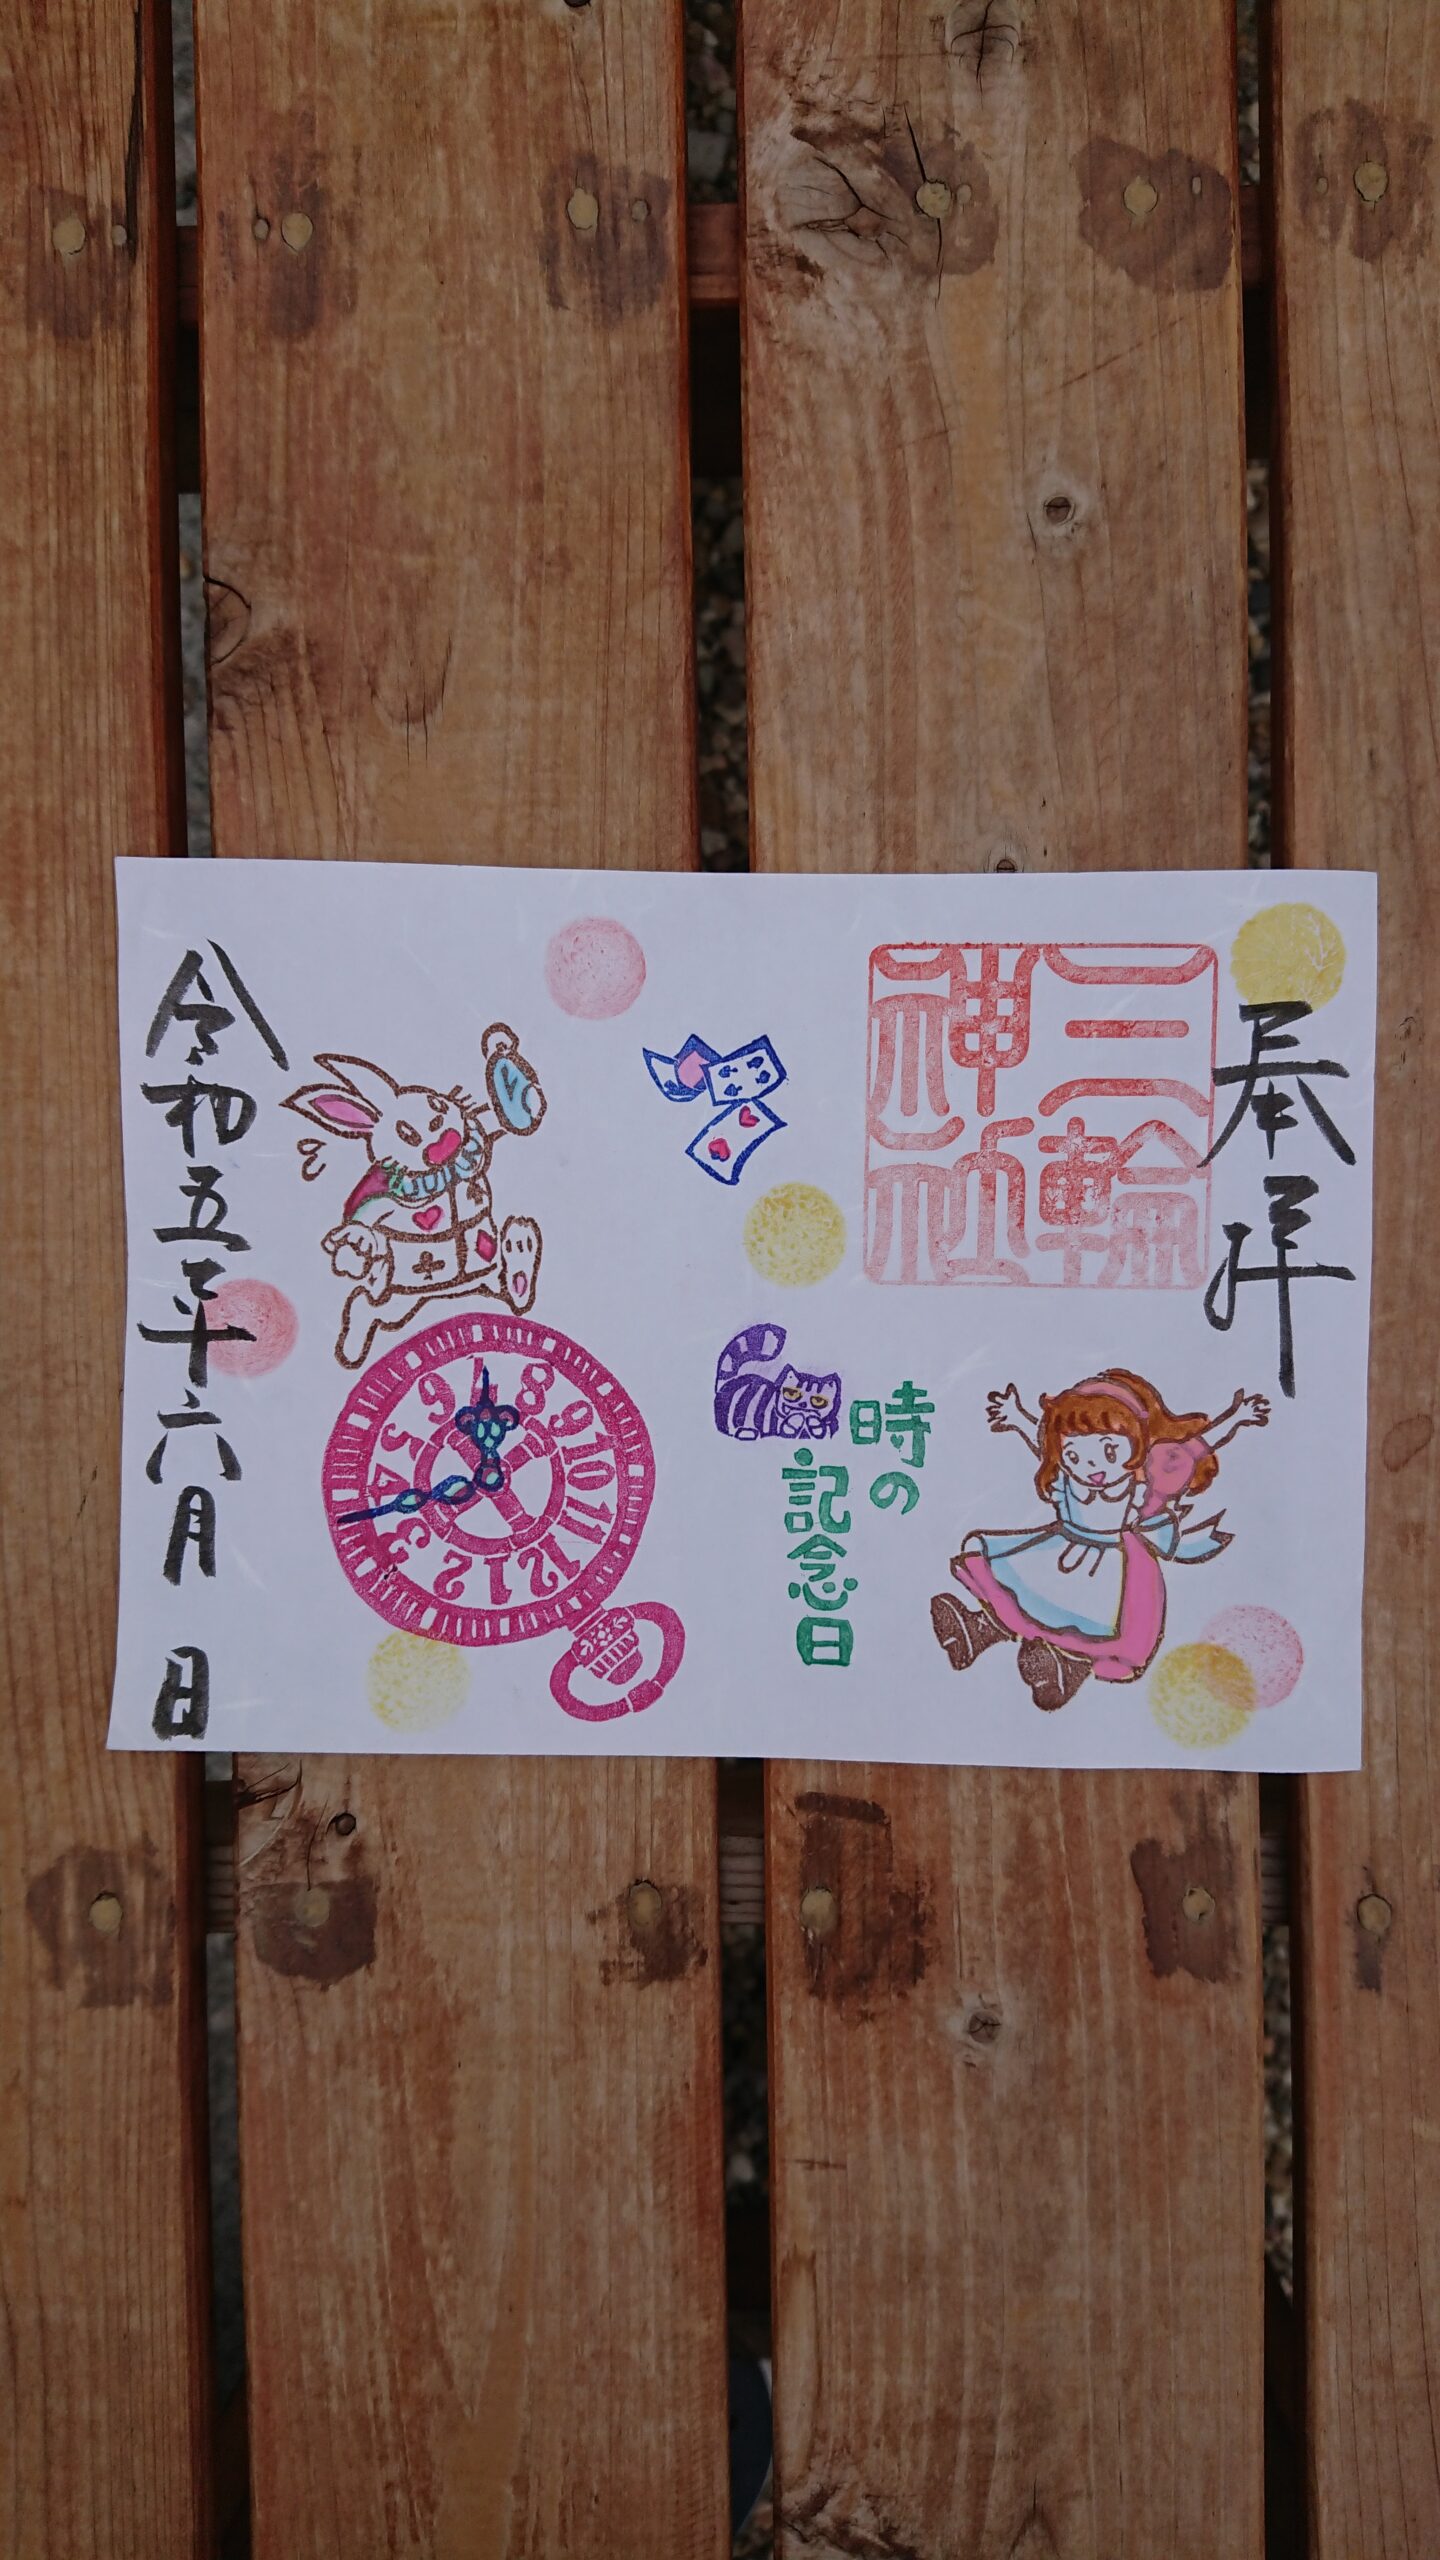 奉拝
三輪
神社
時の
記念日
令和五年六月 日
1 2 3 4 5 6 7 8 9 10 11 12